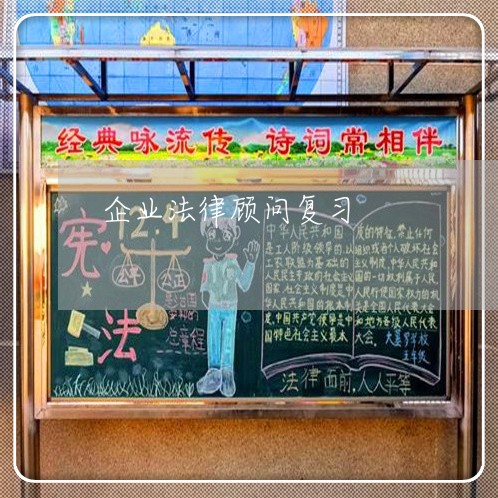 经典咏流传 诗词常相伴
企业法律顾问复习
12.4
宪
法
公平
公正
总章程
中华人民共和国
是工人阶级领导的,以
工农联盟为基础的
人民民主专政的社会主义
国家,社会主义制度是中
华人民共和国的根本制
度,中国共产党领导是中
国特色社会主义最本
质的特征,禁止任何
组织或者个人破坏社会
主义制度,中华人民共和
国的一切权利属于人
民,人民行使国家权力的机
关是全国人民代表大会
和地方各级人民代表
大会。
五年级
法律面前,人人平等